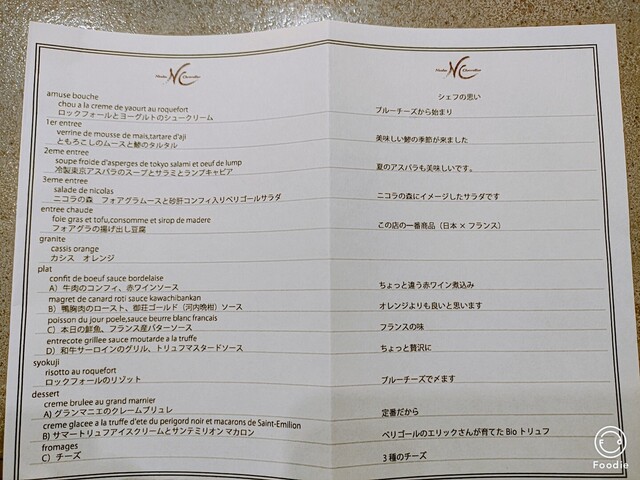 NC
amuse bouche
chou a la creme de yaourt au roquefort
ロックフォールとヨーグルトのシュークリーム
1er entree
verrine de mousse de mais,tartare d'aji
ともろこしのムースと鯵のタルタル
2eme entree
soupe froide d'asperges de tokyo salami et oeuf de lump
冷製東京アスパラのスープとサラミとランプキャビア
3eme entree
salade de nicolas
ニコラの森　フォアグラムースと砂肝コンフィ入りペリゴールサラダ
entree chaude
foie gras et tofu,consomme et sirop de madere
フォアグラの揚げ出し豆腐
granite
cassis orange
カシス　オレンジ
plat
confit de boeuf sauce bordelaise
A）牛肉のコンフィ、赤ワインソース
magret de canard roti sauce kawachibankan
B）鴨胸肉のロースト、御荘ゴールド（河内晩柑）ソース
poisson du jour poele,sauce beurre blanc francais
C）本日の鮮魚、フランス産バターソース
entrecote grillee sauce moutarde a la truffe
D）和牛サーロインのグリル、トリュフマスタードソース
syokuji
risotto au roquefort
ロックフォールのリゾット
dessert
creme brulee au grand marnier
A) グランマニエのクレームブリュレ
creme glacee a la truffe d'ete du perigord noir et macarons de Saint-Emilion
B) サマートリュフアイスクリームとサンテミリオン マカロン
fromages
C）チーズ
NC
シェフの思い
ブルーチーズから始まり
美味しい鯵の季節が来ました
夏のアスパラも美味しいです。
ニコラの森にイメージしたサラダです
この店の一番商品（日本 × フランス）
ちょっと違う赤ワイン煮込み
オレンジよりも良いと思います
フランスの味
ちょっと贅沢に
ブルーチーズで〆ます
定番だから
ペリゴールのエリックさんが育てた Bio トリュフ
３種のチーズ
Foodie